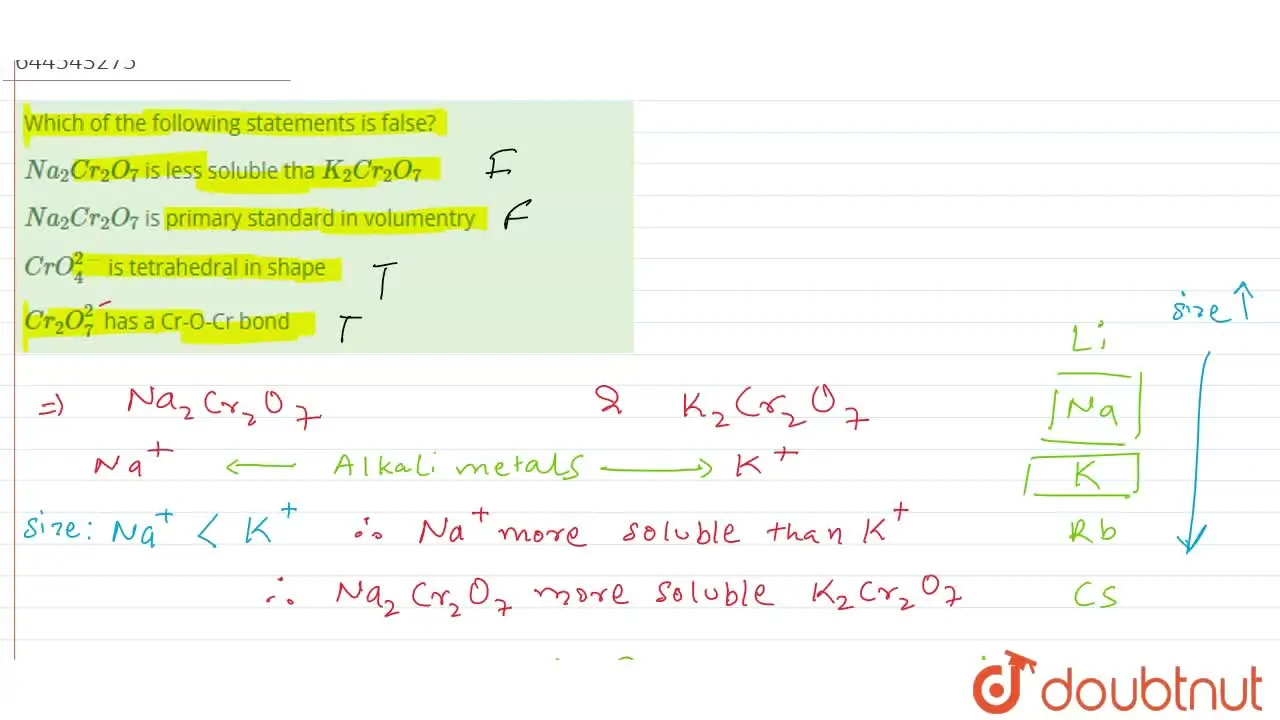 644543275
Which of the following statements is false?
Na₂Cr₂O₇ is less soluble tha K₂Cr₂O₇ F
Na₂Cr₂O₇ is primary standard in volumentry F
CrO₄²⁻ is tetrahedral in shape T
Cr₂O₇²⁻ has a Cr-O-Cr bond T
size ↑
Li
⇒) Na₂Cr₂O₇ & K₂Cr₂O₇
Na
Na⁺ ← Alkali metals → K⁺
K
size: Na⁺ < K⁺ ∴ Na⁺ more soluble than K⁺
Rb
∴ Na₂Cr₂O₇ more soluble K₂Cr₂O₇
Cs
doubtnut